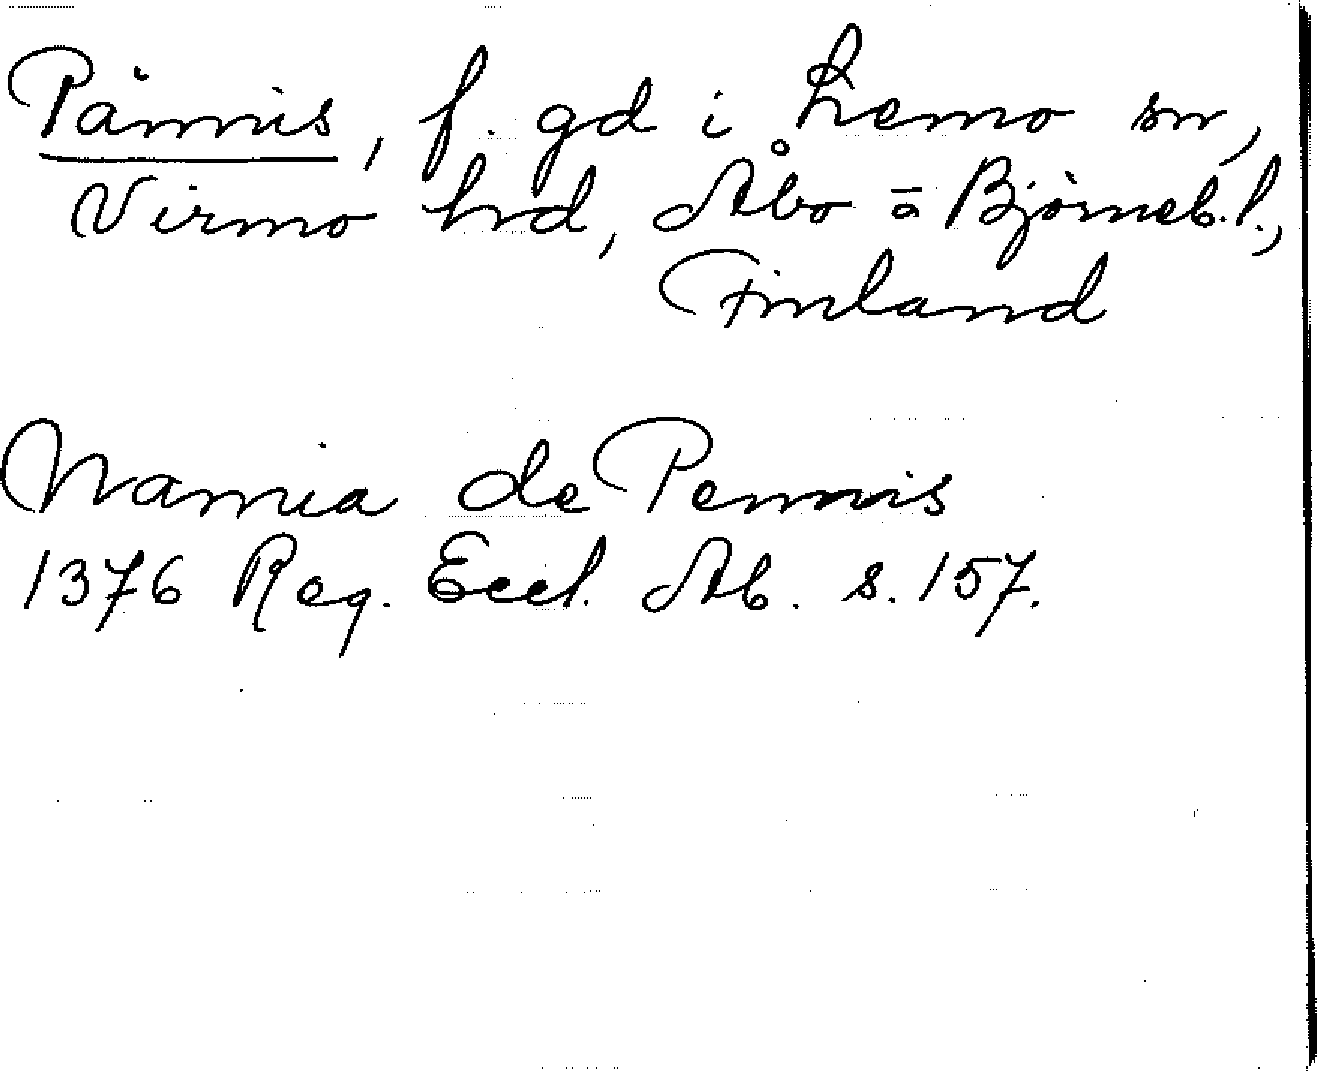 Pännis, f. gd i Lemo sn,
Virmo hrd, Åbo o Björneb. l.,
Finland
Warnia de Pennis
1376 Reg. Eccl. Ab. s. 157.